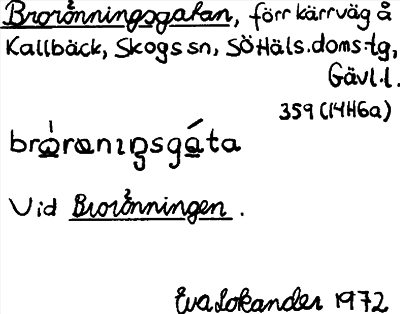 Brorönningsgatan, förr kärrväg å
Kallbäck, Skogs sn, SöHäls.doms.tg,
Gävl.l.
359 (14H6a)
Vid Brorönningen.
Eva Lokander 1972